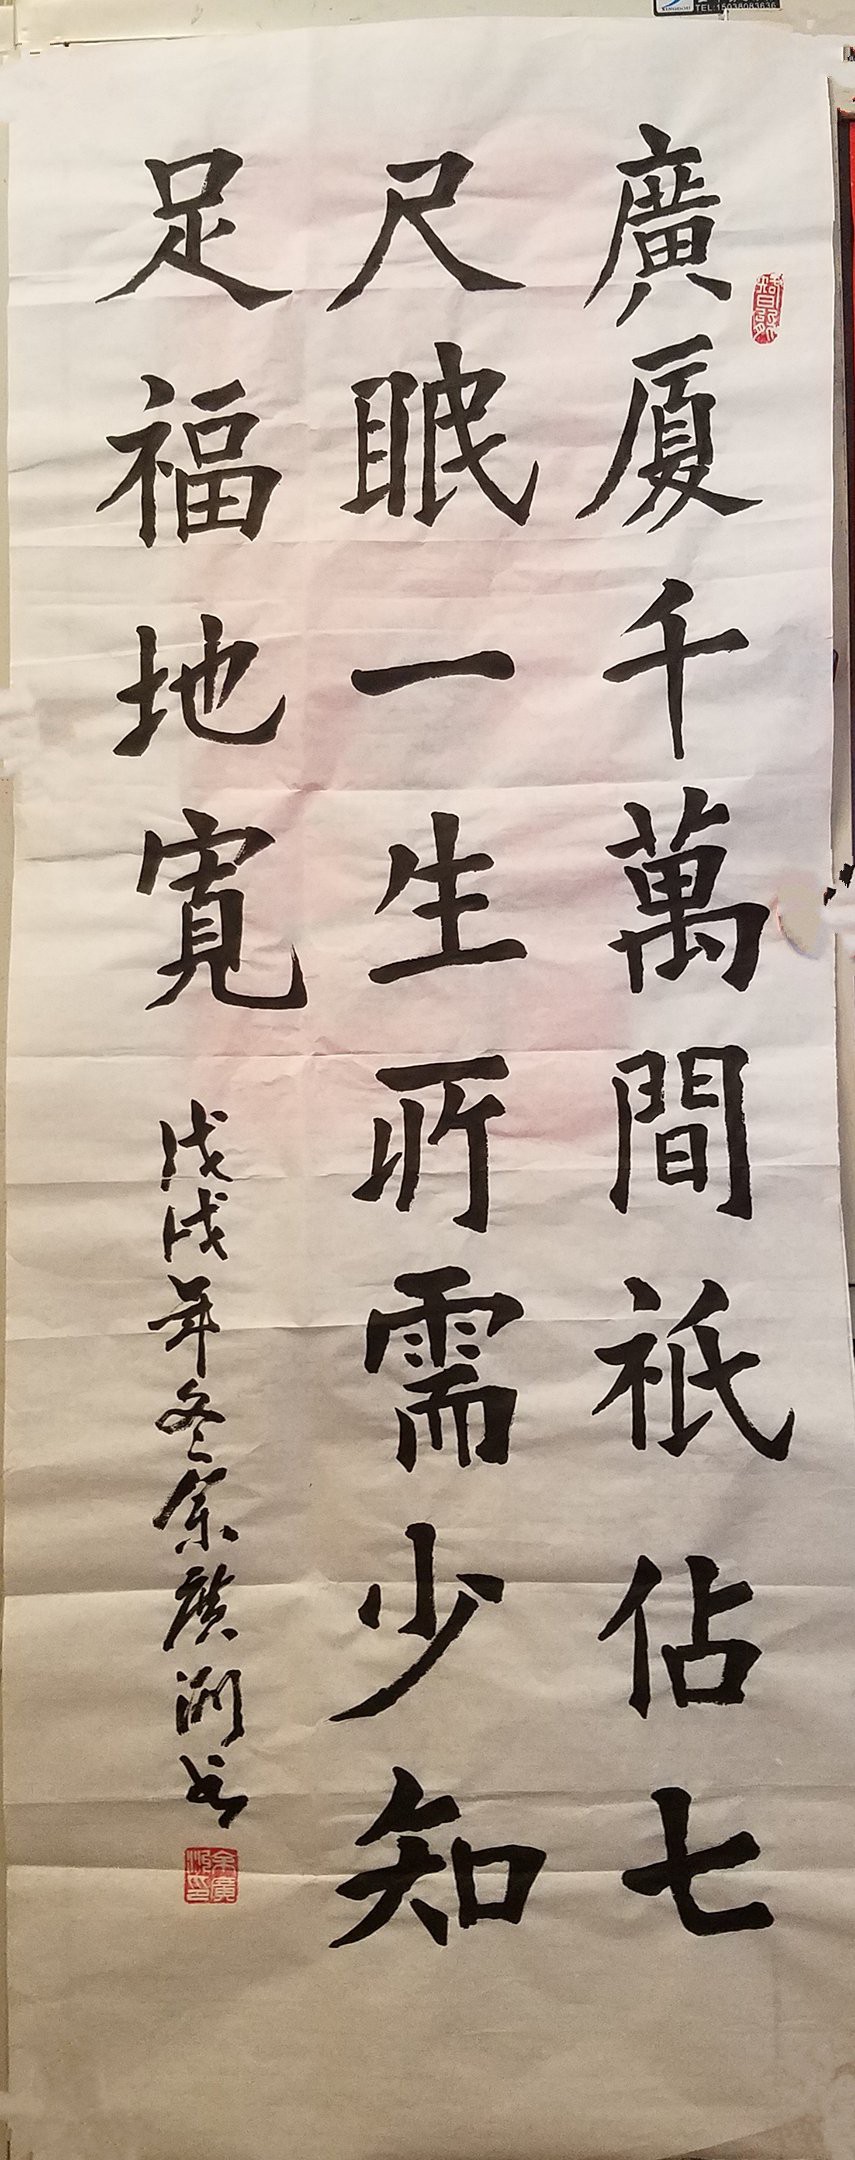 廣厦千萬間祇佔七
尺眠一生所需少知
足福地寬
戊戌年冬余廣洲书
余廣洲印
TEL:15038083636